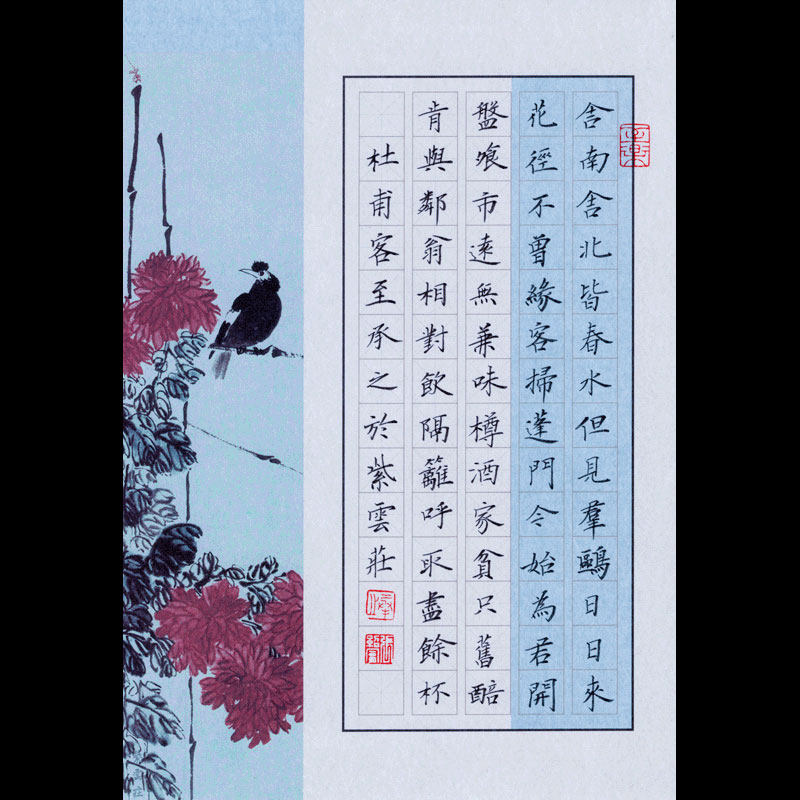 舍南舍北皆春水但見羣鷗日日來
花徑不曾緣客掃蓬門今始為君開
盤飧市遠無兼味樽酒家貧只舊醅
肯與鄰翁相對飲隔籬呼取盡餘杯
杜甫客至承之於紫雲莊